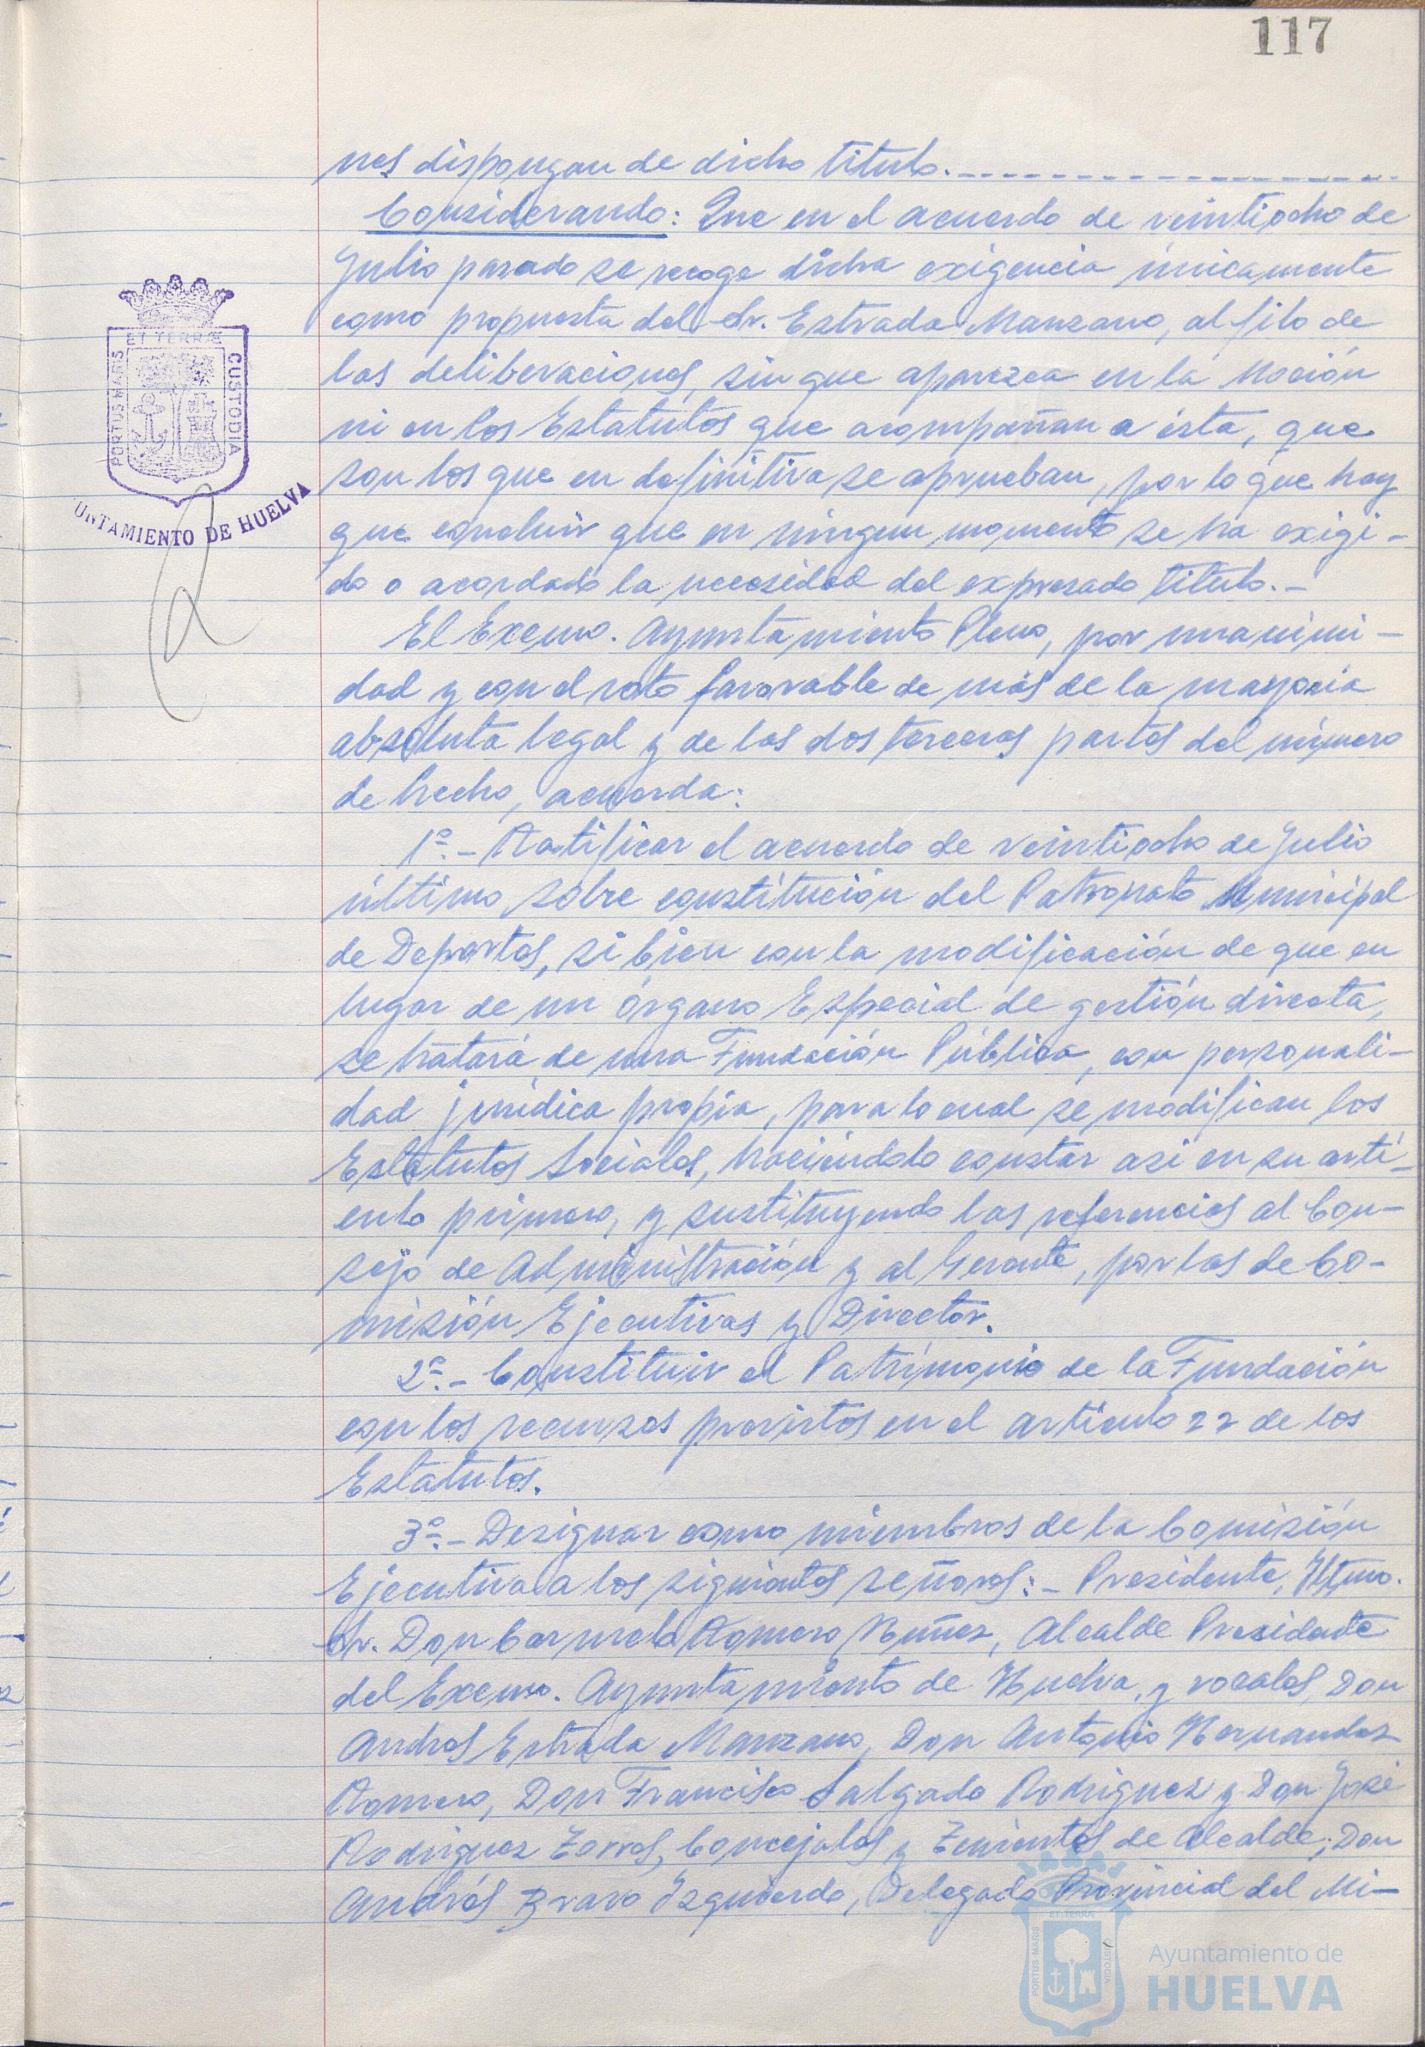 117
nes dispongan de dicho titulo.
Considerando: Que en el acuerdo de veintiocho de
Julio pasado se recoge dicha exigencia únicamente
como propuesta del Sr. Estrada Manzano, al filo de
las deliberaciones, sin que aparezca en la Moción
ni en los Estatutos que acompañan a ésta, que
son los que en definitiva se aprueban, por lo que hay
que concluir que en ningun momento se ha exigi-
do o acordado la necesidad del expresado titulo.-
El Excmo. Ayuntamiento Pleno, por unanimi-
dad y con el voto favorable de más de la mayoria
absoluta legal y de las dos terceras partes del número
de hecho, acuerda:
1º.- Ratificar el acuerdo de veintiocho de Julio
último sobre constitución del Patronato Municipal
de Deportes, si bien con la modificación de que en
lugar de un órgano Especial de gestión directa,
se tratará de una Fundación Pública, con personali-
dad jurídica propia, para lo cual se modifican los
Estatutos Sociales, haciéndolo constar asi en su artí-
culo primero, y sustituyendo las referencias al Con-
sejo de Administración y al Gerente, por las de Co-
misión Ejecutivas y Director.
2º.- Constituir el Patrimonio de la Fundación
con los recursos previstos en el artículo 22 de los
Estatutos.
3º.- Designar como miembros de la Comisión
Ejecutiva a los siguientes señores:- Presidente, Iltmo.
Sr. Don Carmelo Romero Núñez, Alcalde Presidente
del Excmo. Ayuntamiento de Huelva, y vocales, Don
Andres Estrada Manzano, Don Antonio Hernandez
Romero, Don Francisco Salgado Rodriguez y Don José
Rodriguez Torres, Concejales y Tenientes de Alcalde; Don
Andrés Bravo Izquierdo, Delegado Provincial del Mi-
PORTUS MARIS ET TERRÆ CUSTODIA
UNTAMIENTO DE HUELVA
PORTUS MARIS ET TERRÆ CUSTODIA
Ayuntamiento de
HUELVA